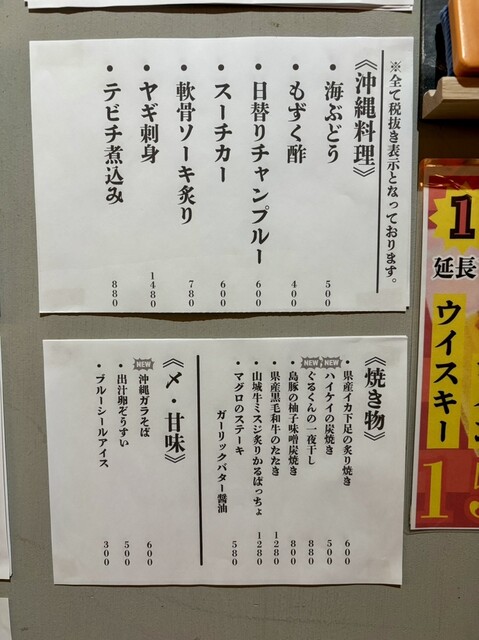 ※全て税抜き表示となっております。
《沖縄料理》
・海ぶどう 500
・もずく酢 400
・日替りチャンプルー 600
・スーチカー 600
・軟骨ソーキ炙り 780
・ヤギ刺身 1480
・テビチ煮込み 880
《焼き物》
・県産イカ下足の炙り焼き 600
NEW
・ハイケイの炭焼き 500
NEW
・ぐるくんの一夜干し 880
・島豚の柚子味噌炭焼き 800
・県産黒毛和牛のたたき 1280
・山城牛ミスジ炙りかるぱっちょ 1280
・マグロのステーキ
ガーリックバター醤油 580
《〆・甘味》
NEW
・沖縄ガラそば 600
・出汁卵ぞうすい 500
・ブルーシールアイス 300
延長
ウイスキー